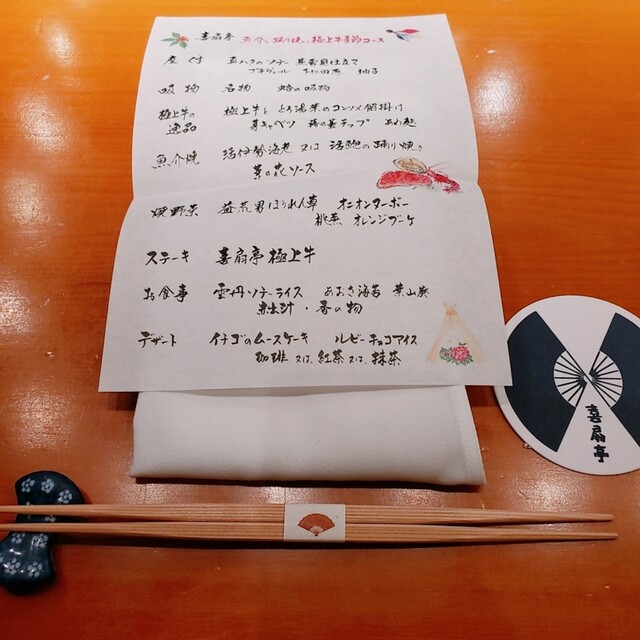 喜扇亭 魚介の踊り焼と極上牛季節コース
座付 真ハタのソテー 柚子
吸物 名物 蛤の吸物
極上牛の逸品 極上牛と とろ湯葉のコンソメ餡掛け
芽キャベツ チップ あわ麩
魚介焼 活伊勢海老 又は 活鮑の踊り焼き
菜の花ソース
焼野菜 益荒男ほうれん草 オニオンヌーボー
桃蕪 オレンジブーケ
ステーキ 喜扇亭極上牛
お食事 雲丹ソテーライス あおさ海苔 葉山葵
赤出汁・香の物
デザート イチゴのムースケーキ ルビーチョコアイス
珈琲 又は、紅茶 又は、抹茶
喜扇亭